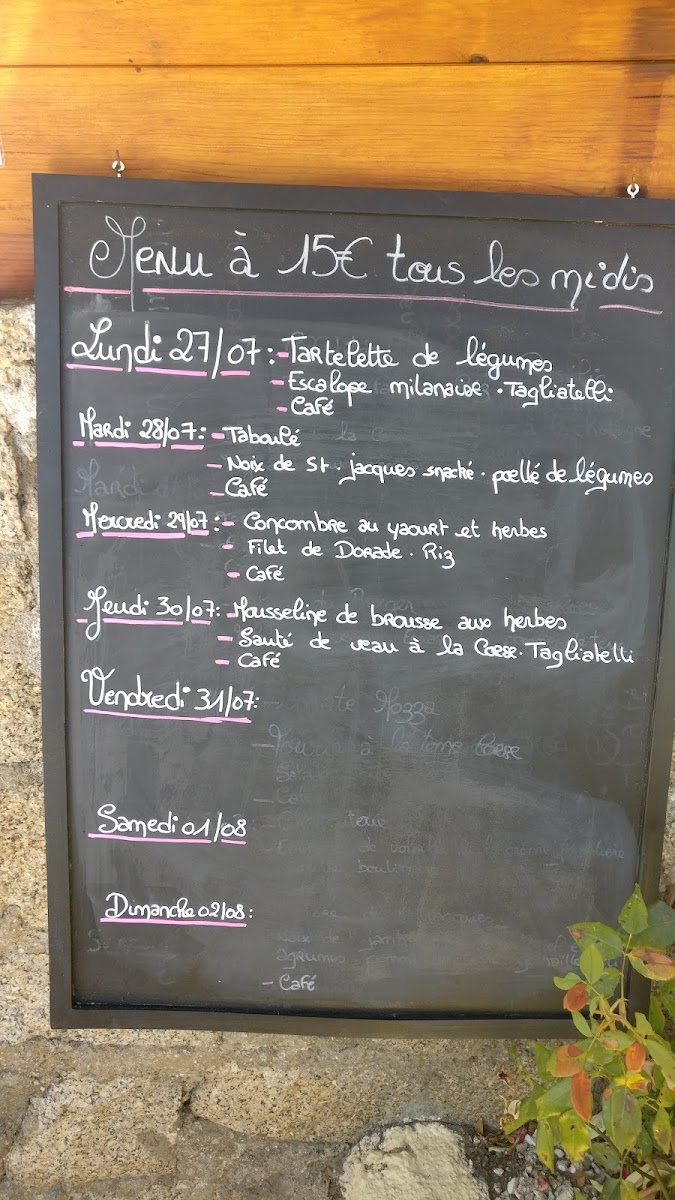 Menu à 15€ tous les midis
Lundi 27/07 : - Tartelette de légumes
- Escalope milanaise . Tagliatelli
- Café
Mardi 28/07 : - Taboulé
- Noix de St . jacques snacké . poellé de légumes
- Café
Mercredi 29/07 : - Concombre au yaourt et herbes
- Filet de Dorade . Riz
- Café
Jeudi 30/07 : - Mousseline de brousse aux herbes
- Sauté de veau à la Corse . Tagliatelli
- Café
Vendredi 31/07 :
Mozza
à la tome Corse
Samedi 01/08
Dimanche 02/08 :
Noix de
agrumes
- Café